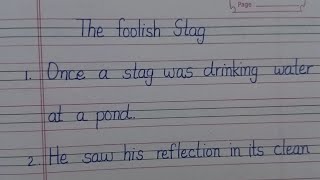 Page
The foolish Stag
1. Once a stag was drinking water
at a pond.
2. He saw his reflection in its clean